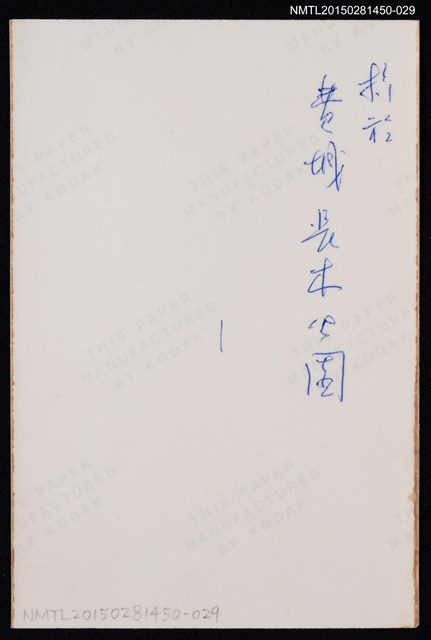 NMTL20150281450-029
於
費城長木公園
THIS PAPER
MANUFACTURED
BY KODAK
THIS PAPER
MANUFACTURED
BY KODAK
THIS PAPER
MANUFACTURED
BY KODAK
THIS PAPER
MANUFACTURED
BY KODAK
THIS PAPER
MANUFACTURED
BY KODAK
NMTL20150281450-029